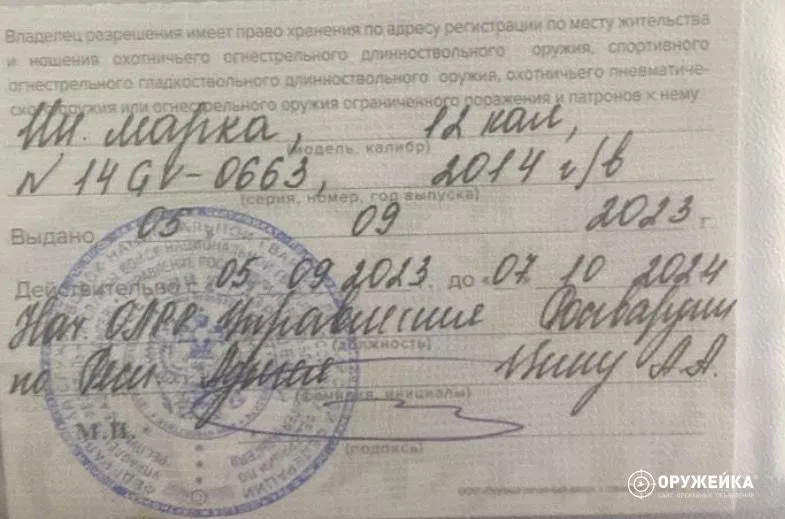 Владелец разрешения имеет право хранения по адресу регистрации по месту жительства
и ношения охотничьего огнестрельного длинноствольного оружия, спортивного
огнестрельного гладкоствольного длинноствольного оружия, охотничьего пневматиче-
ского оружия или огнестрельного оружия ограниченного поражения и патронов к нему
Ин. марка, 12 кал,
(модель, калибр)
N 14GV-0663, 2014 г/в
(серия, номер, год выпуска)
Выдано 05 09 2023 г.
Действительно с 05 09 2023. до «07» 10 2024
Нач ОЛРР Управления Росгвардии
(должность)
по Респ. Адыгея А.А.
(фамилия, инициалы)
М.П.
(подпись)
ОРУЖЕЙКА
САЙТ ОРУЖЕЙНЫХ ОБЪЯВЛЕНИЙ